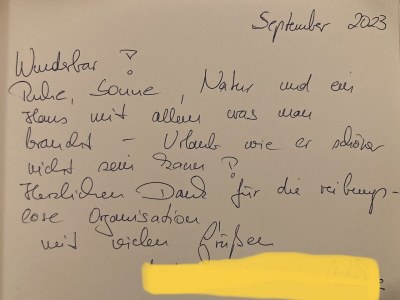 September 2023
Wunderbar !
Ruhe, Sonne, Natur und ein
Haus mit allem was man
braucht – Urlaub wie er schöner
nicht sein kann !
Herzlichen Dank für die reibungs-
lose Organisation
mit vielen Grüßen